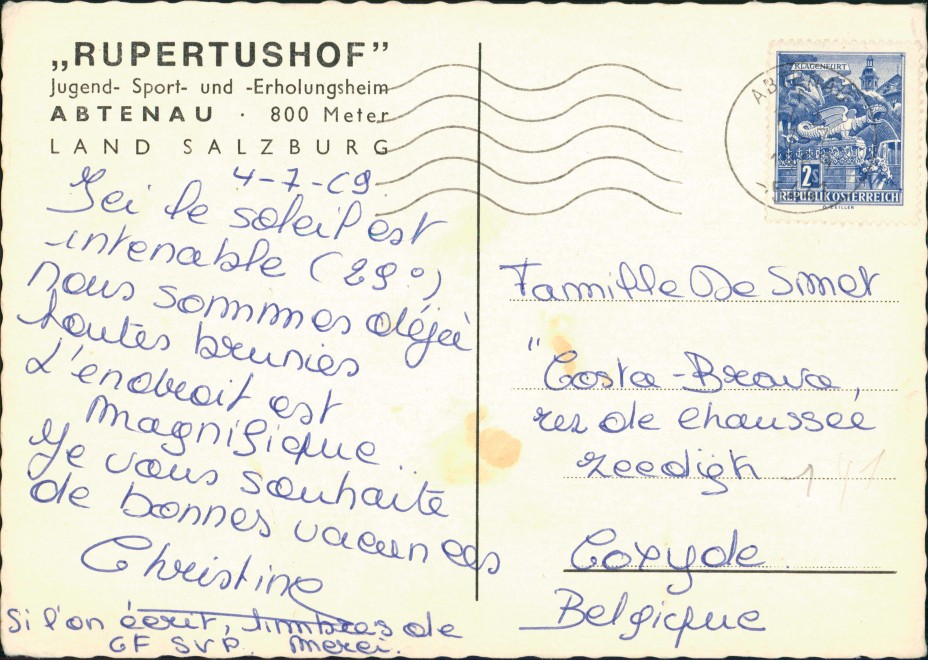 „RUPERTUSHOF”
Jugend- Sport- und -Erholungsheim
ABTENAU · 800 Meter
LAND SALZBURG
4-7-69
Ici le soleil est
intenable (29°)
nous sommmes déjà
toutes brunies
L'endroit est
magnifique..
Je vous souhaite
de bonnes vacances
Christine
Si l'on écrit, timbres de
6F SVP. Merci.
KLAGENFURT
2S
REPUBLIK ÖSTERREICH
Famille De Smet
"Costa-Brava,
rez de chaussée
Zeedijk
Coxyde
Belgique